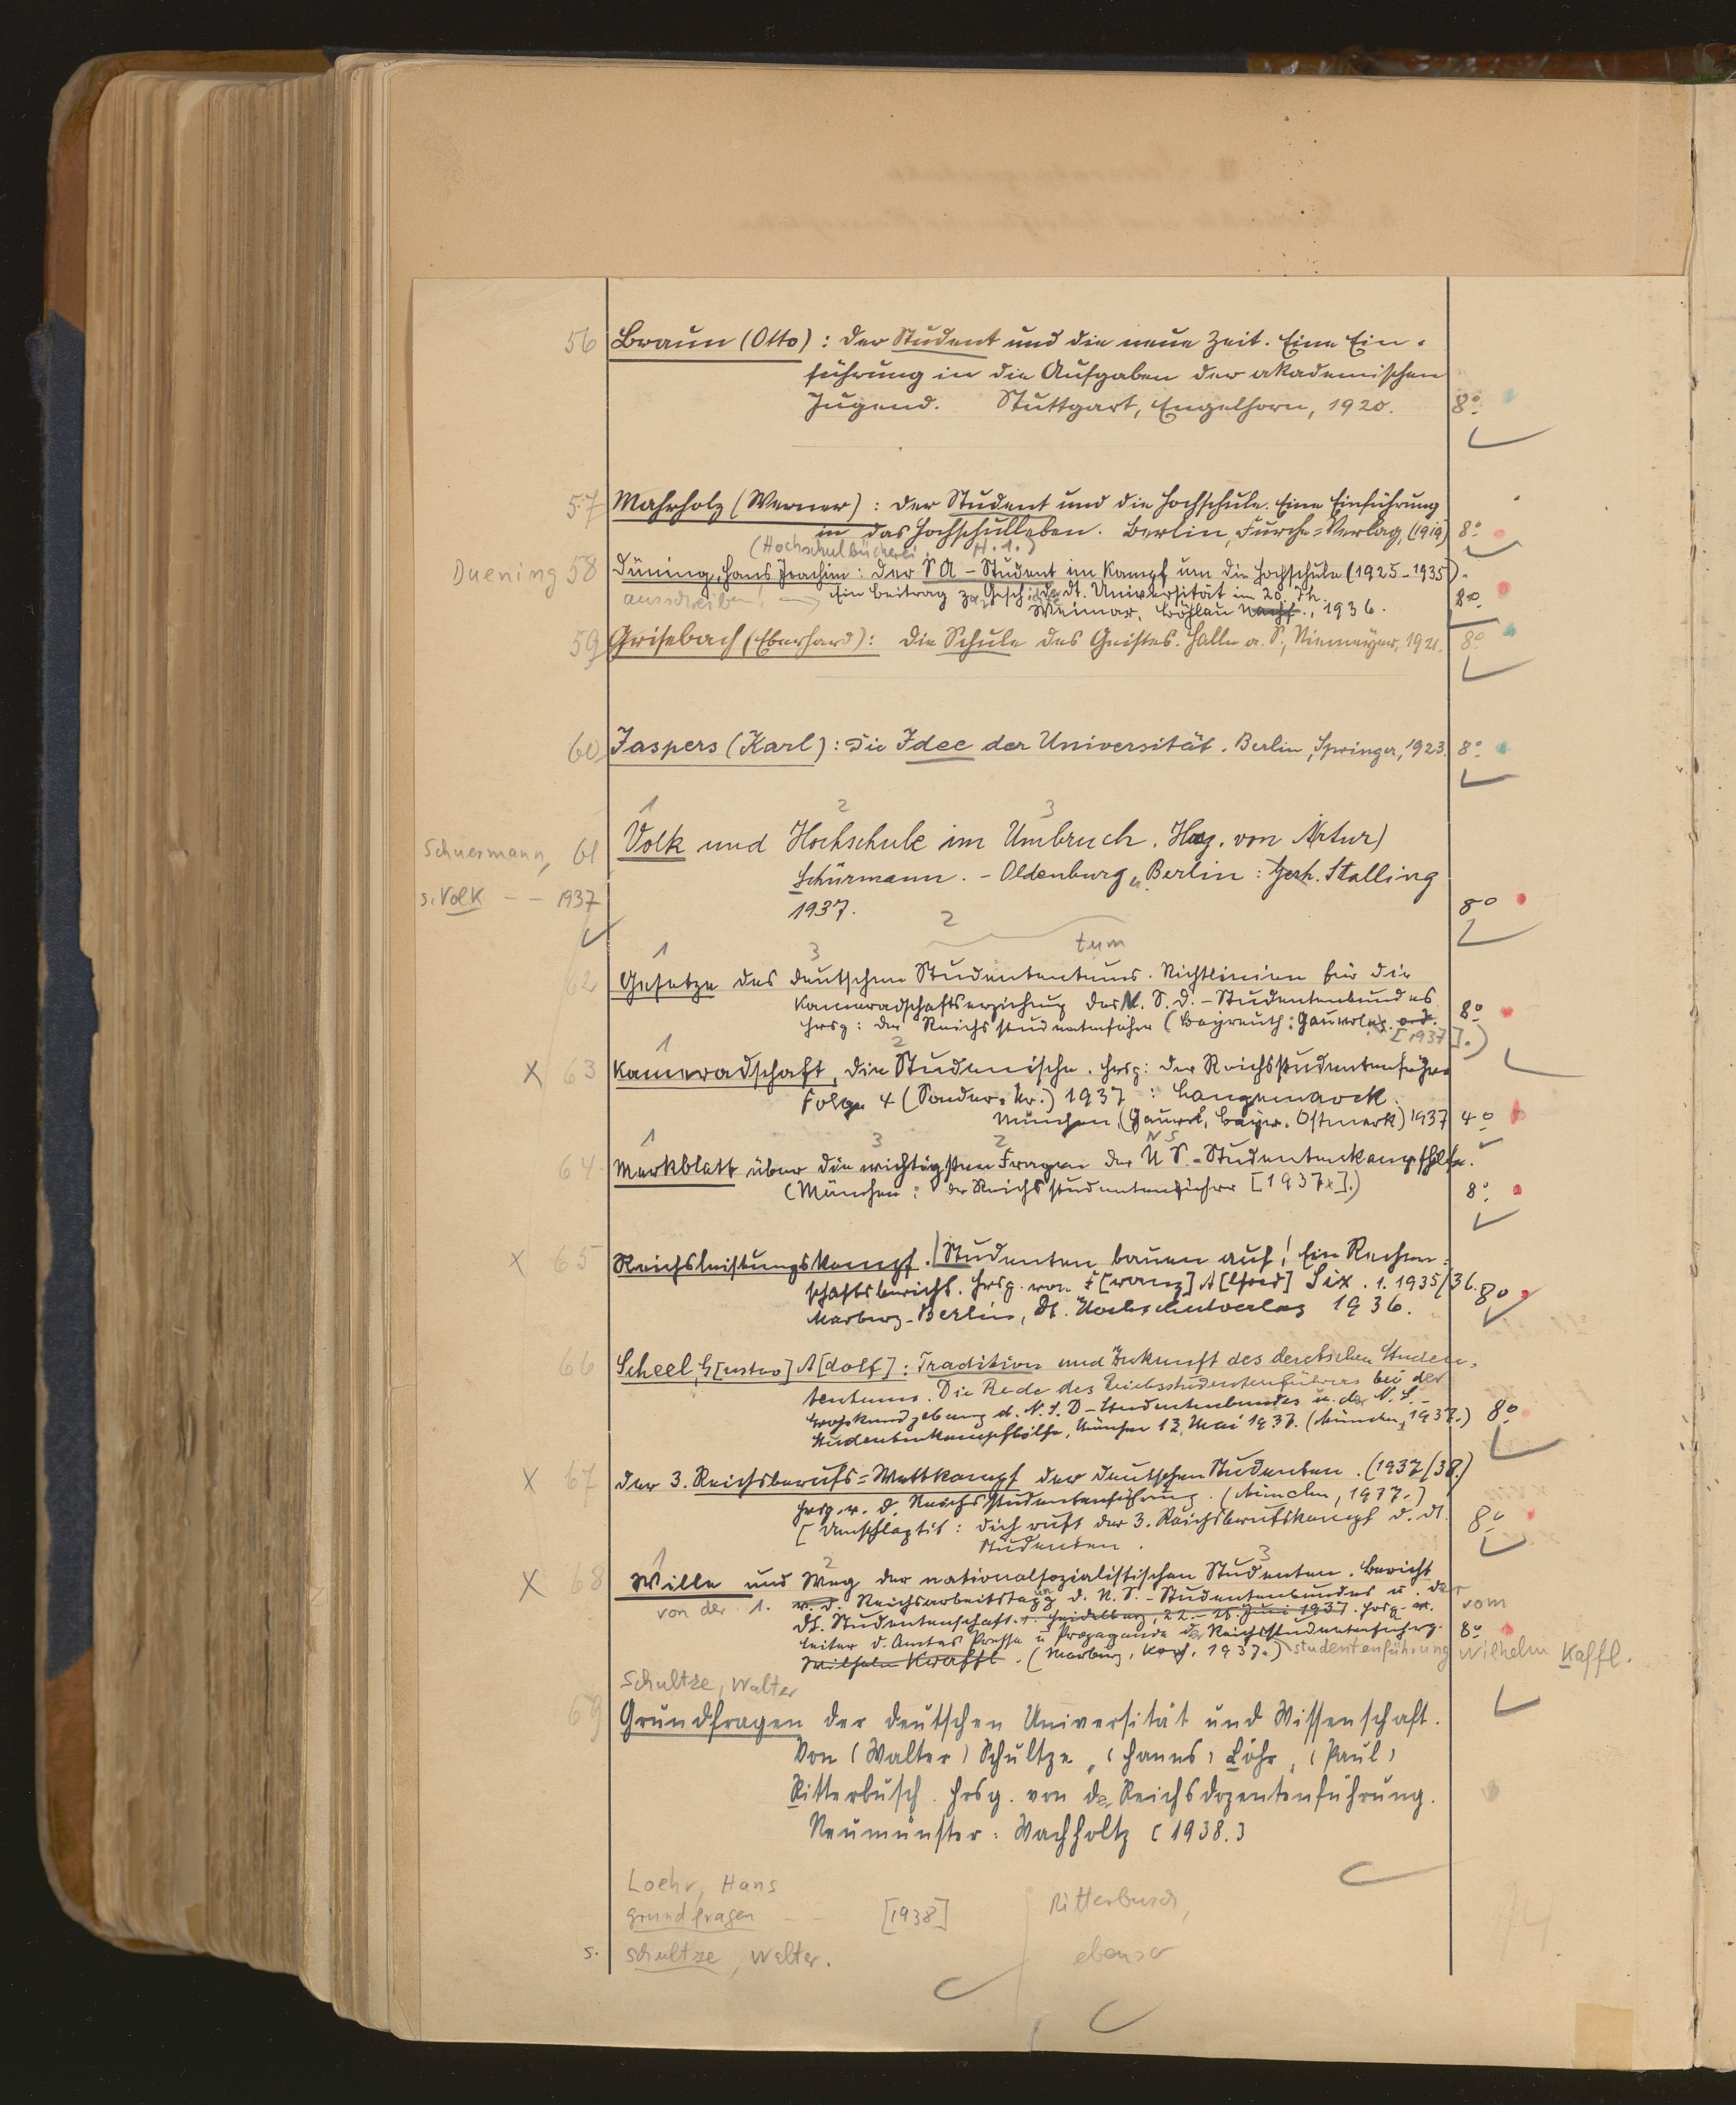 56 Braun (Otto): Der Student und die neue Zeit. Eine Ein-
führung in die Aufgaben der akademischen
Jugend. Stuttgart, Engelhorn, 1920. 8°
57 Mahrholz (Werner): Der Student und die Hochschule. Eine Einführung
in das Hochschulleben. Berlin, Furche-Verlag, (1919) 8°
(Hochschulbücherei. H. 1.)
Duening 58 Düning, Hans Joachim: Der SA-Student im Kampf um die Hochschule (1925-1935).
ausschreiben! Ein Beitrag zur Gesch. d. dt. Universität im 20. Jh.
Weimar, Böhlau Nachf., 1936. 8°
59 Grisebach (Eberhard): Die Schule des Geistes. Halle a. S., Niemeyer, 1921. 8°
60 Jaspers (Karl): Die Idee der Universität. Berlin, Springer, 1923. 8°
1 2 3
Schuermann, 61 Volk und Hochschule im Umbruch. Hrsg. von Artur)
Schürmann. - Oldenburg u. Berlin: Gerh. Stalling
s. Volk - - 1937
1937. 8°
2
1 3 tum
62 Gesetze des deutschen Studententums. Richtlinien für die
Kameradschaftserziehung des N.S.D.-Studentenbundes
Hrsg: der Reichsstudentenführer (Bayreuth: Gauverlag o.J. [1937].) 8°
1 2
x 63 Kameradschaft, Die Studentische. Hrsg: der Reichsstudentenführer
Folge 4 (Sonder-Nr.) 1937: Langemarck.
München, (Gauverl. Bayr. Ostmark) 1937 4°
1 3 2 NS
64 Merkblatt über die wichtigsten Fragen der NS.-Studentenkampfhilfe.
(München: der Reichsstudentenführer [1937].) 8°
x 65 Reichsleistungskampf. Studenten bauen auf! Ein Rechen-
schaftsbericht. Hrsg. von F[ranz] A[lfred] Six. 1. 1935/36. 8°
Marburg-Berlin, Dt. Hochschulverlag 1936.
66 Scheel, G[ustav] A[dolf]: Tradition und Zukunft des deutschen Studen-
tentums. Die Rede des Reichsstudentenführers bei der
Grosskundgebung d. N.S.D-Studentenbundes u. der N.S.-
Studentenkampfhilfe, München 13. Mai 1937. (München, 1937.) 8°
x 67 Der 3. Reichsberufs-Wettkampf der deutschen Studenten. (1937/38.)
Hrsg. v. d. Reichsstudentenführung. (München, 1937.)
[Umschlagtit: Dich ruft der 3. Reichsberufskampf d. dt. 8°
Studenten.
1 2 3
x 68 Wille und Weg der nationalsozialistischen Studenten. Bericht
von der 1. v. d. Reichsarbeitstagung d. N.S.-Studentenbundes u. der
dt. Studentenschaft. 1. Heidelberg, 22.-25. Juni 1937. Hrsg. v. vom
Leiter d. Amtes Presse u. Propaganda der Reichsstudentenführg. 8°
Wilhelm Kaffl. (Marburg, 1937.) studentenführung Wilhelm Kaffl.
Schultze, Walter
69 Grundfragen der deutschen Universität und Wissenschaft.
Von (Walter) Schultze, (Hanns) Löhr, (Paul)
Ritterbusch. Hrsg. von der Reichsdozentenführung.
Neumünster: Wachholtz (1938.)
Loehr, Hans
grundfragen - - [1938]
s. Schultze, Walter.
Ritterbusch,
ebenso